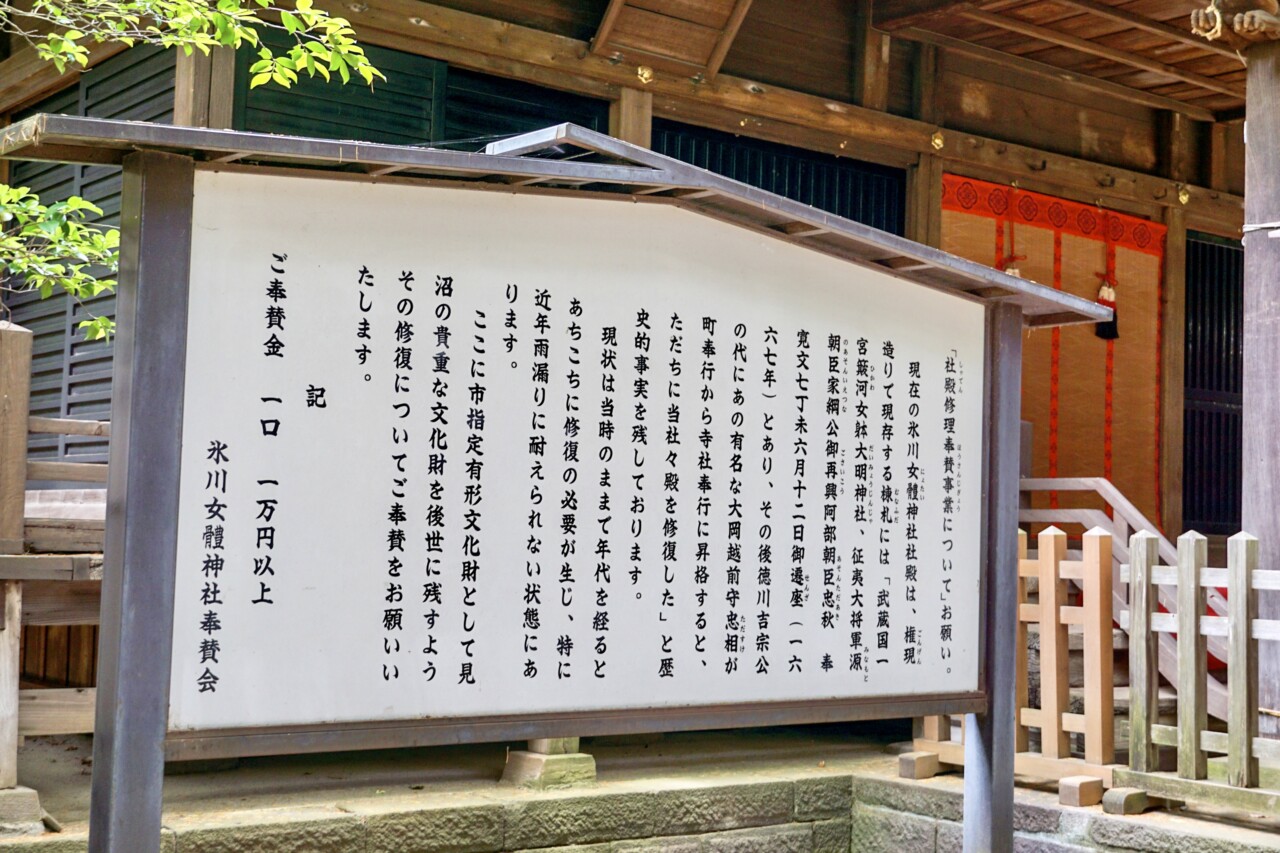 「社殿修理奉賛事業について」お願い。
現在の氷川女體神社社殿は、権現
造りで現存する棟札には「武蔵国一
宮簸河女躰大明神社、征夷大将軍源
朝臣家綱公御再興阿部朝臣忠秋　奉
寛文七丁未六月十二日御遷座（一六
六七年）とあり、その後徳川吉宗公
の代にあの有名な大岡越前守忠相が
町奉行から寺社奉行に昇格すると、
ただちに当社々殿を修復した」と歴
史的事実を残しております。
現状は当時のままで年代を経ると
あちこちに修復の必要が生じ、特に
近年雨漏りに耐えられない状態にあ
ります。
ここに市指定有形文化財として見
沼の貴重な文化財を後世に残すよう
その修復についてご奉賛をお願いい
たします。
記
ご奉賛金　一口　一万円以上
氷川女體神社奉賛会